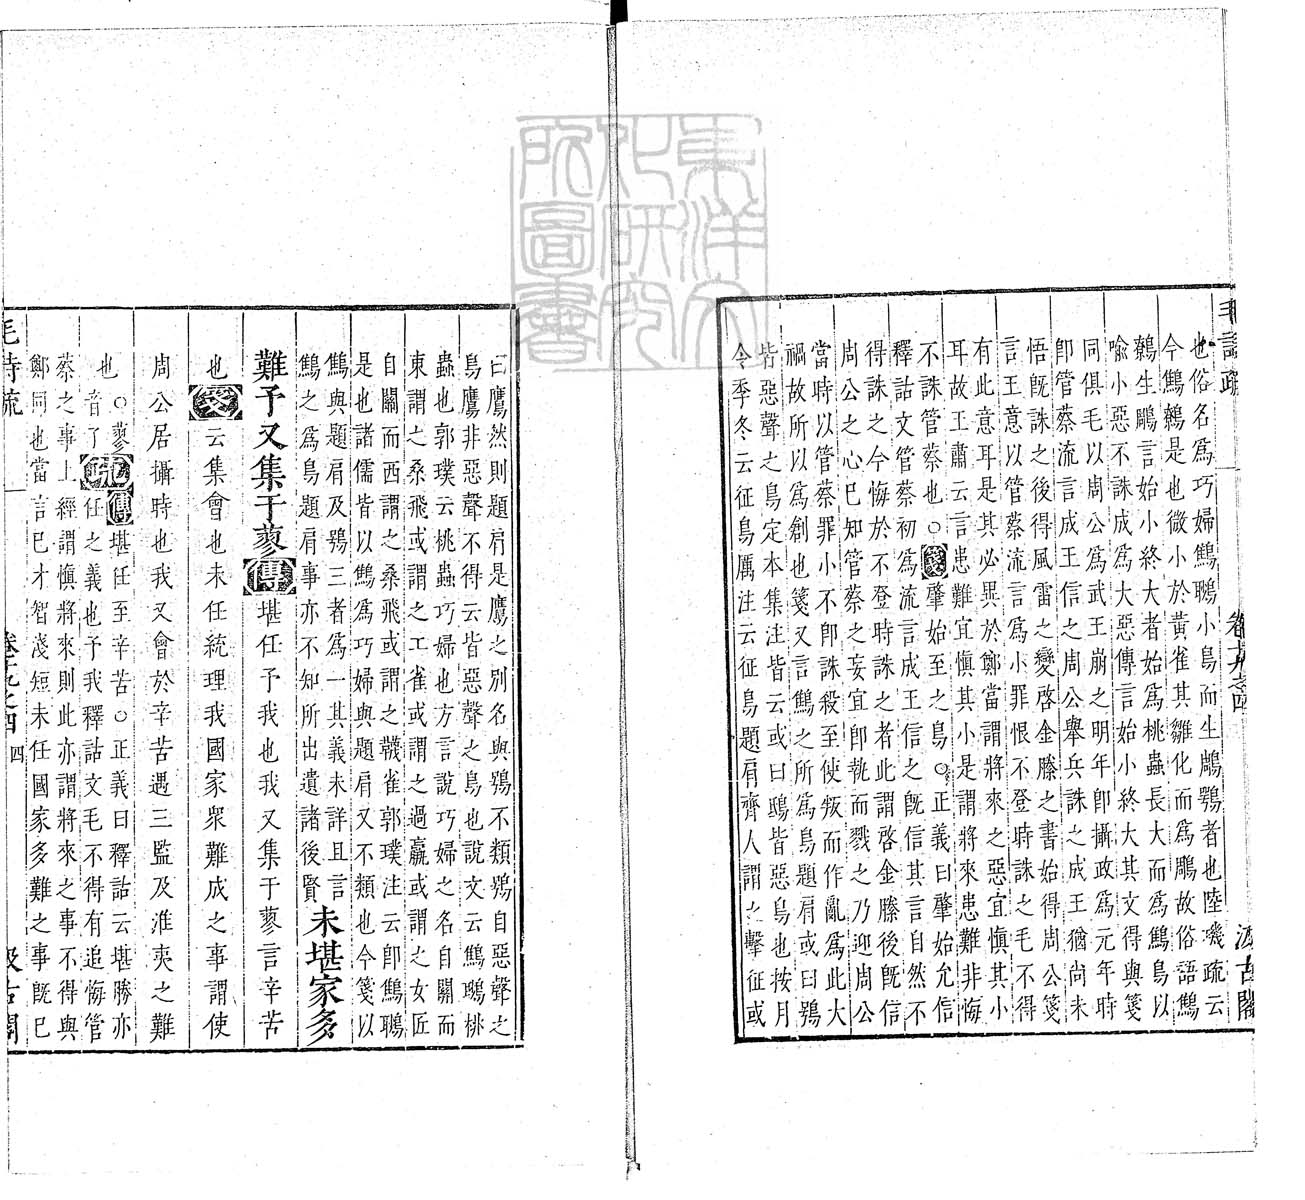 毛詩疏
卷十九之四
汲古閣
也俗名爲巧婦鷦鷯小鳥而生鵰鶚者也陸璣疏云
今鷦鷯是也微小於黃雀其雛化而爲鵰故俗語鷦
鷯生鵰言始小終大者始爲桃蟲長大而爲鷦鳥以
喻小惡不誅成爲大惡傳言始小終大其文得與箋
同俱毛以周公爲武王崩之明年卽攝政爲元年時
卽管蔡流言成王信之周公舉兵誅之成王猶尚未
悟旣誅之後得風雷之變啓金縢之書始得周公箋
言王意以管蔡流言爲小罪恨不登時誅之毛不得
有此意耳是其必異於鄭當謂將來之惡宜愼其小
耳故王肅云言患難宜愼其小是謂將來患難非悔
不誅管蔡也○箋肇始至之鳥○正義曰肇始允信
釋詁文管蔡初爲流言成王信之旣信其言自然不
得誅之今悔於不登時誅之者此謂啓金縢後旣信
周公之心已知管蔡之妄宜卽執而戮之乃迎周公
當時以管蔡罪小不卽誅殺至使叛而作亂爲此大
禍故所以爲創也箋又言鷦之所爲鳥題肩或曰鴞
皆惡聲之鳥定本集注皆云或曰鴟皆惡鳥也按月
令季冬云征鳥厲注云征鳥題肩齊人謂之擊征或
曰鷹然則題肩是鷹之別名與鴞不類鴞自惡聲之
鳥鷹非惡聲不得云皆惡聲之鳥也說文云鷦鷯桃
蟲也郭璞云桃蟲巧婦也方言說巧婦之名自關而
東謂之桑飛或謂之工雀或謂之過蠃或謂之女匠
自關而西謂之桑飛或謂之韈雀郭璞注云卽鷦鷯
是也諸儒皆以鷦爲巧婦與題肩又不類也今箋以
鷦與題肩及鴞三者爲一其義未詳且言
鷦之爲鳥題肩事亦不知所出遺諸後賢
未堪家多
難予又集于蓼傳堪任予我也我又集于蓼言辛苦
也箋云集會也未任統理我國家衆難成之事謂使
周公居攝時也我又會於辛苦遇三監及淮夷之難
也○蓼音了疏傳堪任至辛苦○正義曰釋詁云堪勝亦
任之義也予我釋詁文毛不得有追悔管
蔡之事上經謂愼將來則此亦謂將來之事不得與
鄭同也當言已才智淺短未任國家多難之事旣已
毛詩疏
卷十九之四
四
汲古閣
東洋文化研究所圖書